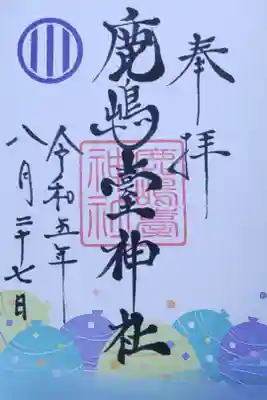 奉拝
鹿嶋臺神社
鹿嶋臺
神社
令和五年
八月二十七日